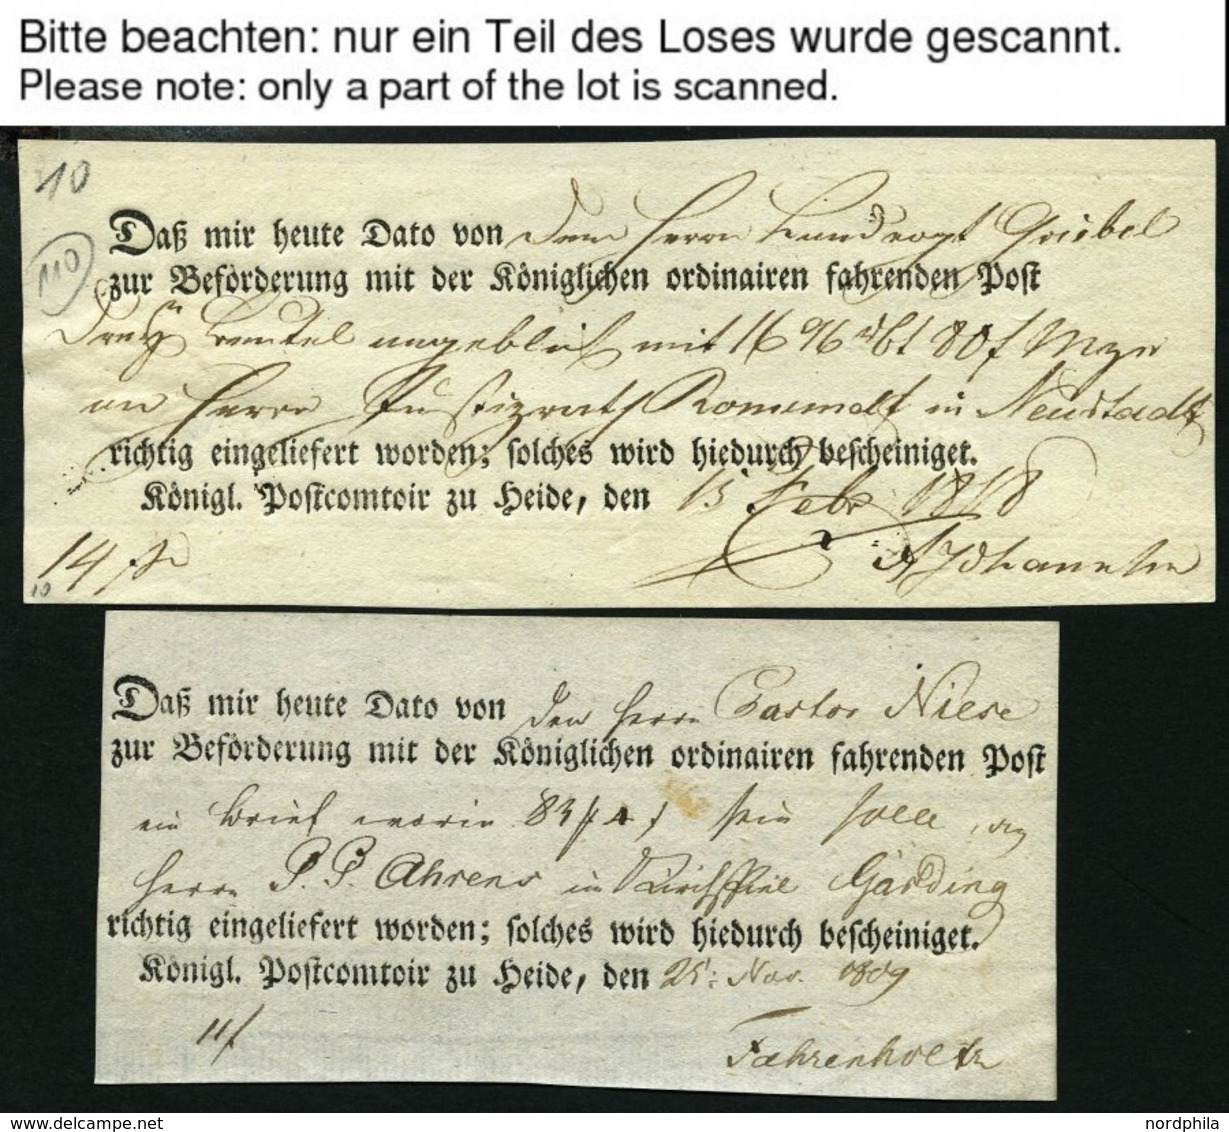 Bitte beachten: nur ein Teil des Loses wurde gescannt.
Please note: only a part of the lot is scanned.
10
110
Daß mir heute Dato von dem Herrn Landvogt Griebel
zur Beförderung mit der Königlichen ordinairen fahrenden Post
Beutel angeblich mit 1696 rbt 80 f
an Herrn Justizrath Romundt in Neustadt
richtig eingeliefert worden; solches wird hiedurch bescheiniget.
Königl. Postcomtoir zu Heide, den 15 Febr 1818
14 Johannsen
10
Daß mir heute Dato von den Herrn Pastor Niese
zur Beförderung mit der Königlichen ordinairen fahrenden Post
ein Brief worin 83 4 sein solle, an
Herrn P. P. Ahrens in Kirchspiel Garding
richtig eingeliefert worden; solches wird hiedurch bescheiniget.
Königl. Postcomtoir zu Heide, den 25: Nov. 1809
11 Fahrenholtz
www.ansichtskartenversand.com
nordphila